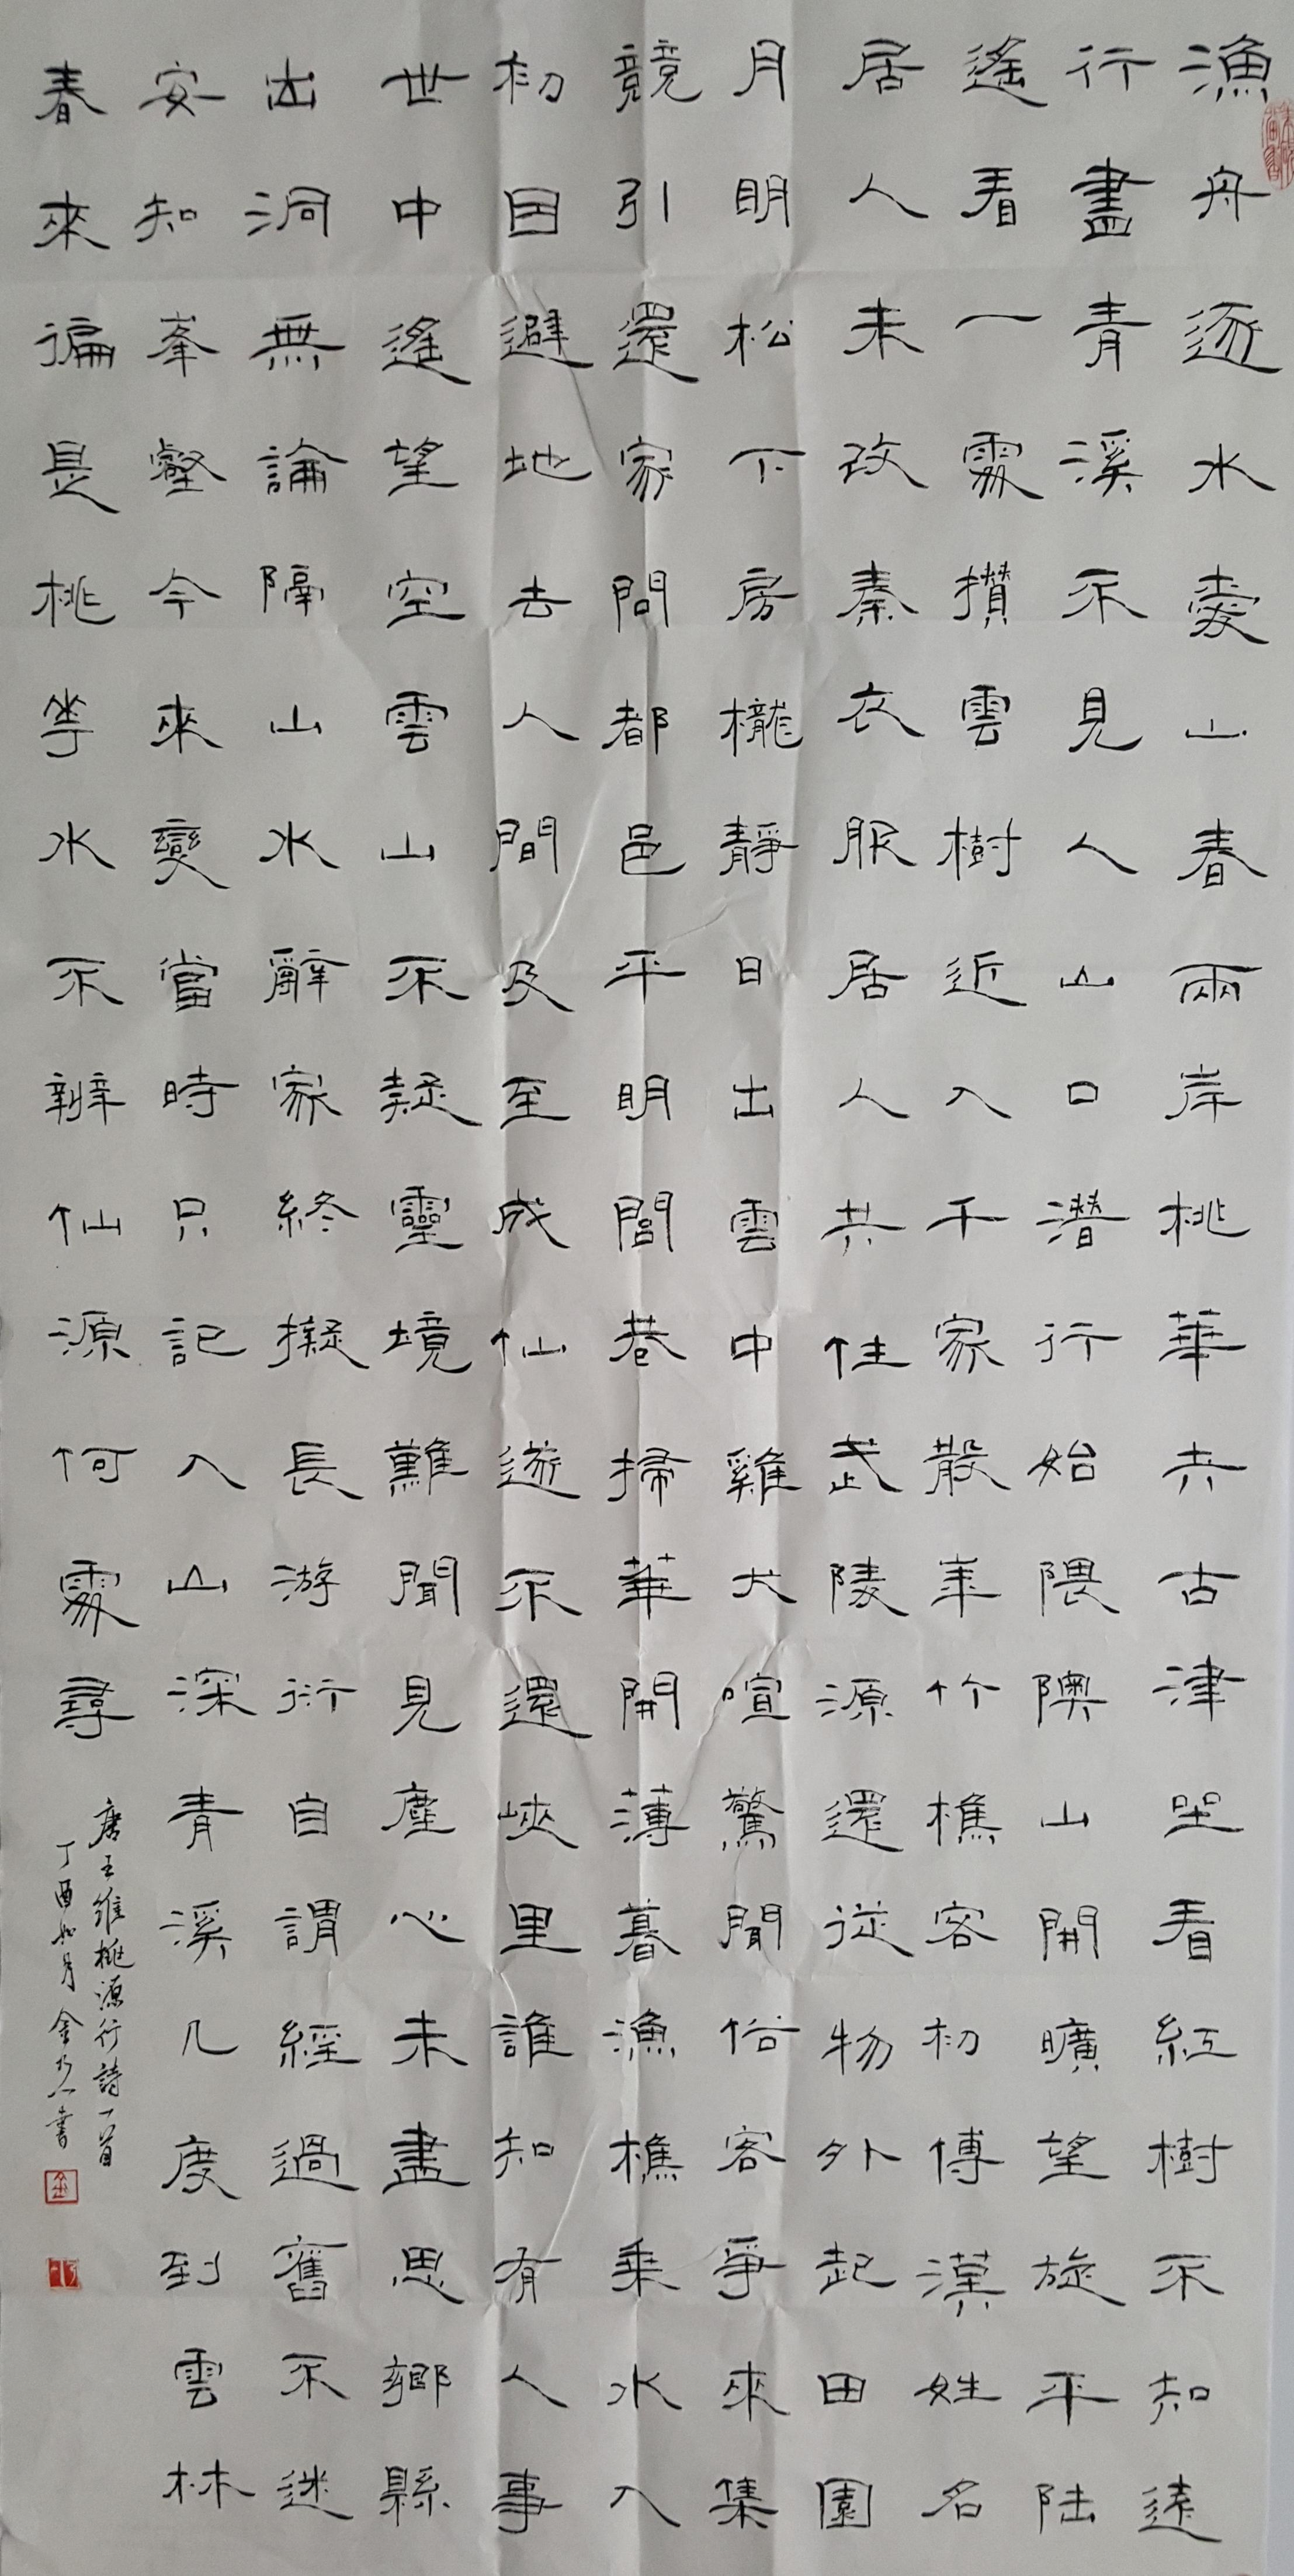 漁舟逐水愛山春兩岸桃華夾古津坐看紅樹不知遠
行盡青溪不見人山口潛行始隈隩山開曠望旋平陸
遙看一處攢雲樹近入千家散華竹樵客初傳漢姓名
居人未改秦衣服居人共住武陵源還從物外起田園
月明松下房櫳靜日出雲中雞犬喧驚聞俗客爭來集
競引還家問都邑平明閭巷掃華開薄暮漁樵乘水入
初因避地去人間及至成仙遂不還峽里誰知有人事
世中遙望空雲山不疑靈境難聞見塵心未盡思鄉縣
出洞無論隔山水辭家終擬長游衍自謂經過舊不迷
安知峯壑今來變當時只記入山深青溪几度到雲林
春來徧是桃華水不辨仙源何處尋
唐王維桃源行詩一首
丁酉如月金書